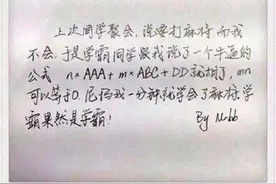 上次同学聚会，说要打麻将而我
不会，于是学霸同学跟我说了一个牛逼的
公式 n×AAA+m×ABC+DD就胡了，mn
可以等于0，尼玛我一分钟就学会了麻将学
霸果然是学霸！ By